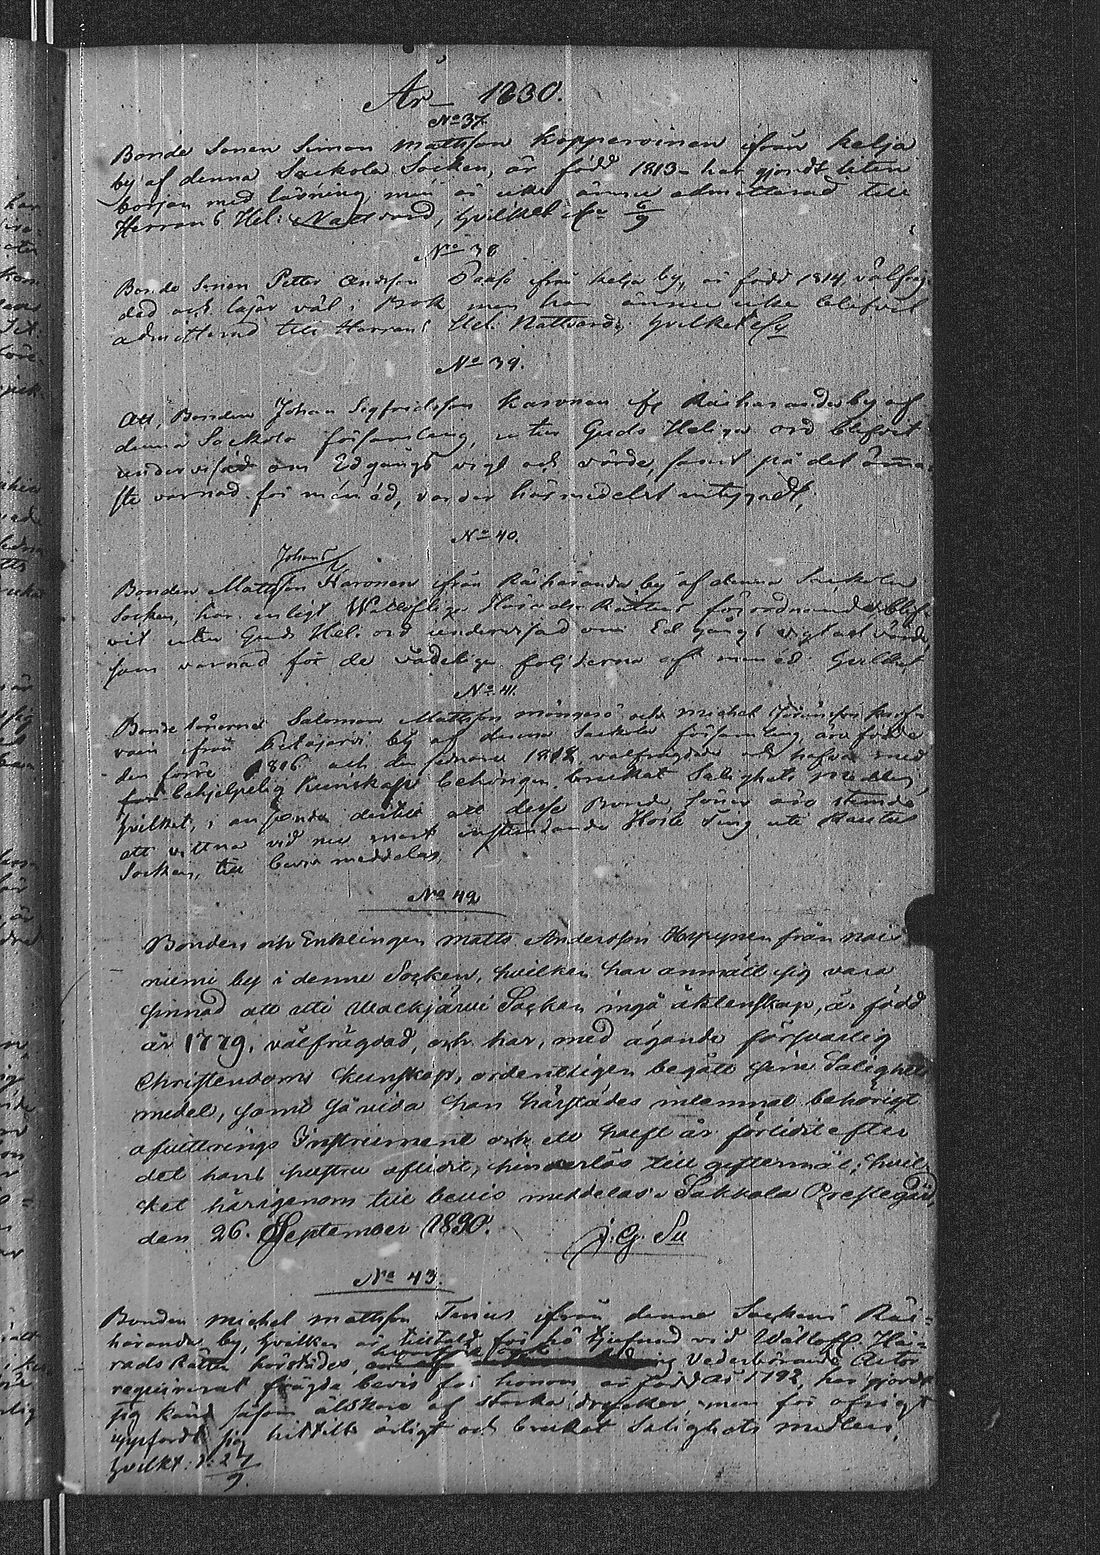 År 1830.
No 37.
Bonde Sonen Simon Mattsson Kopperoinen ifrån Kelja
by af denna Sackola Socken, är född 1813 har gjordt liten
början med läsning, men är icke ännu admitterad till
Herrans Hel: Nattvard, hvilket &c 6/9
No 38
Bonde Sonen Petter Andersson Paaso ifrån Kelja by, är född 1814, välfräg
dad och läser väl i Bok men har ännu icke blefvit
admitterad till Herrans Hel: Nattvard, hvilket
No 39.
Att, Bonden Johan Sigfridsson Karonen ifr Räihäranda by af
denna Sackola församling, utur Guds Heliga ord blefvit
undervisad om Edgångs vigt och värde, samt på det ömma-
ste varnad för mened, varder härmedelst intygadt,
No 40.
Johans
Bonden Mattsson Karonen ifrån Räihäranda by af denna Sackola
Socken, har enligt Wällofliga Härads Rättens förordnande blef-
vit utur Guds Hel: ord undervisad om Ed gångs vigt och värde,
samt varnad för de vådeliga följderna af mened. hvilket
No 41.
Bonde sönerna Salomon Mattsson och Michel Johansson
ifrån Petäjärvi by af denna Sackola församling, äro födde
den förre 1816 och den senare 1812, välfrägdade och hafva med
behjelpelig Kunskap behörigen brukat Salighets medlen,
hvilket, i anseende dertill att desse Bonde Söner äro stämde
att vittna vid nu mera instundande Höste Ting uti Rautus
Socken, till bevis meddelas.
No 42
Bonden och Enklingen Matts Andersson Hyyynen från
niemi by i denne Socken, hvilken har anmält sig vara
sinnad att uti Walkjärwi Socken ingå äktenskap, är född
år 1779, välfrägdad, och har, med ägande försvarlig
Christendoms kunskap, ordentligen begått sine Salighets
medel, samt så vida han härstädes inlemnat behörigt
afvittrings Instrument och ett halft år förlidit efter
det hans hustru aflidit, hinderlös till giftermål; hvil-
cket härigenom till bevis meddelas. Sakkola Prestegård
den 26. September 1830.
J. G. Su
No 43.
Bonden Michel Mattsson Tenius ifrån denne Sockens Räi-
häranda by, hvilken är tilltald för tjufnad vid Wällofl. Hä-
rads Rätten härstädes, Vederbörande Actor
requirerat frägde bevis för honom, är född år 1792, har gjordt
sig känd såsom älskare af starka drycker, men för öfrigt
uppfördt sig hittills ärligt och brukat Salighets medlen,
hvilket 27/9.